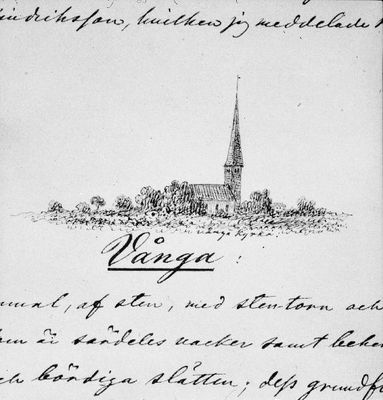 indriksson, hvilken jg meddelade
Vånga kyrka.
Vånga :
mmal, af sten, med sten-torn och
en är särdeles vacker samt beha
ch bördiga slätten; dess grundf